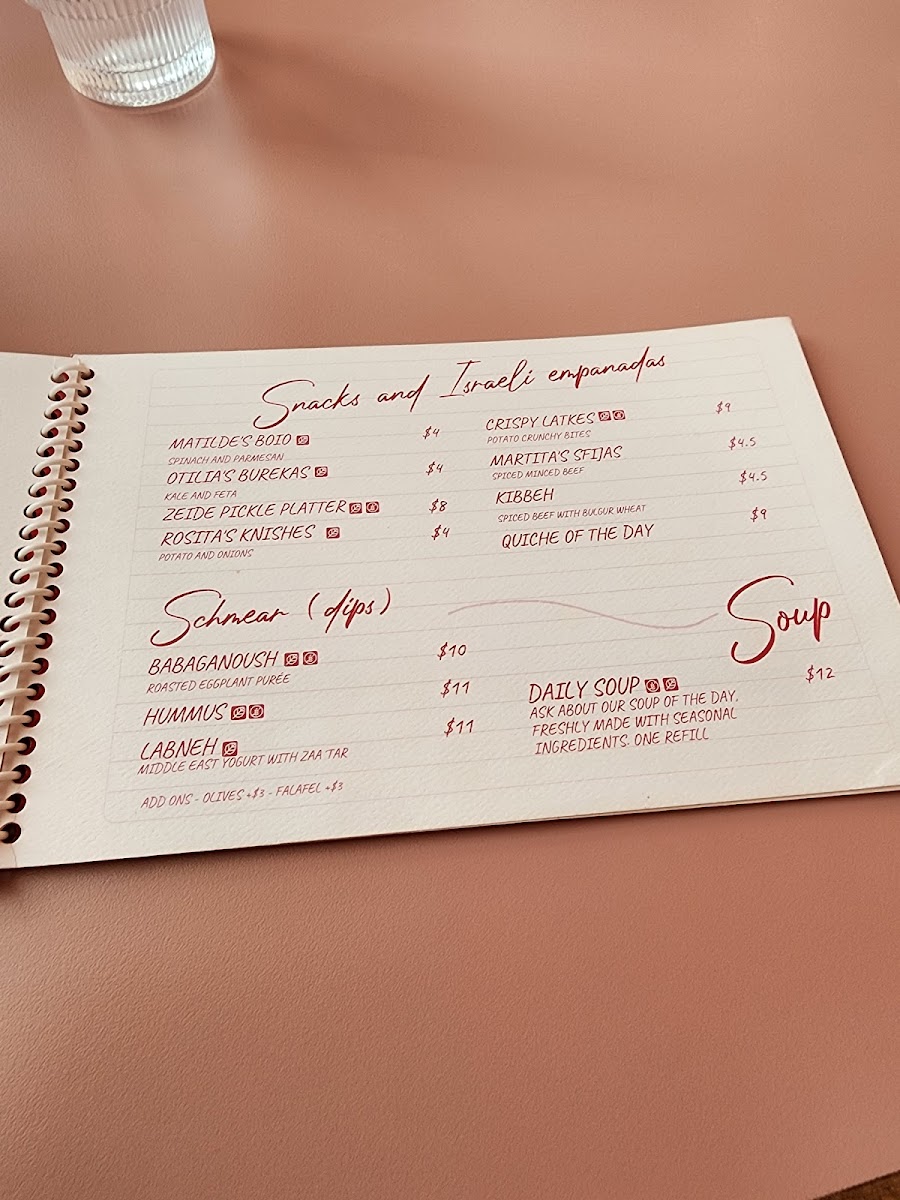 Snacks and Israeli empanadas
MATILDE'S BOIO $4
SPINACH AND PARMESAN
OTILIA'S BUREKAS $4
KALE AND FETA
ZEIDE PICKLE PLATTER $8
ROSITA'S KNISHES $4
POTATO AND ONIONS
CRISPY LATKES $9
POTATO CRUNCHY BITES
MARTITA'S SFIJAS $4.5
SPICED MINCED BEEF
KIBBEH $4.5
SPICED BEEF WITH BULGUR WHEAT
QUICHE OF THE DAY $9
Schmear (dips)
BABAGANOUSH $10
ROASTED EGGPLANT PURÉE
HUMMUS $11
LABNEH $11
MIDDLE EAST YOGURT WITH ZAA'TAR
ADD ONS - OLIVES +$3 - FALAFEL +$3
Soup
DAILY SOUP $12
ASK ABOUT OUR SOUP OF THE DAY.
FRESHLY MADE WITH SEASONAL
INGREDIENTS. ONE REFILL